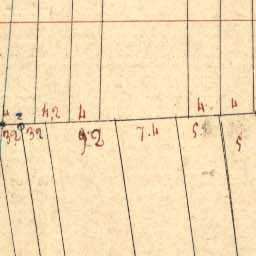 4 2 4,2 4 4 4
32 32 6.2 7.4 5. 5